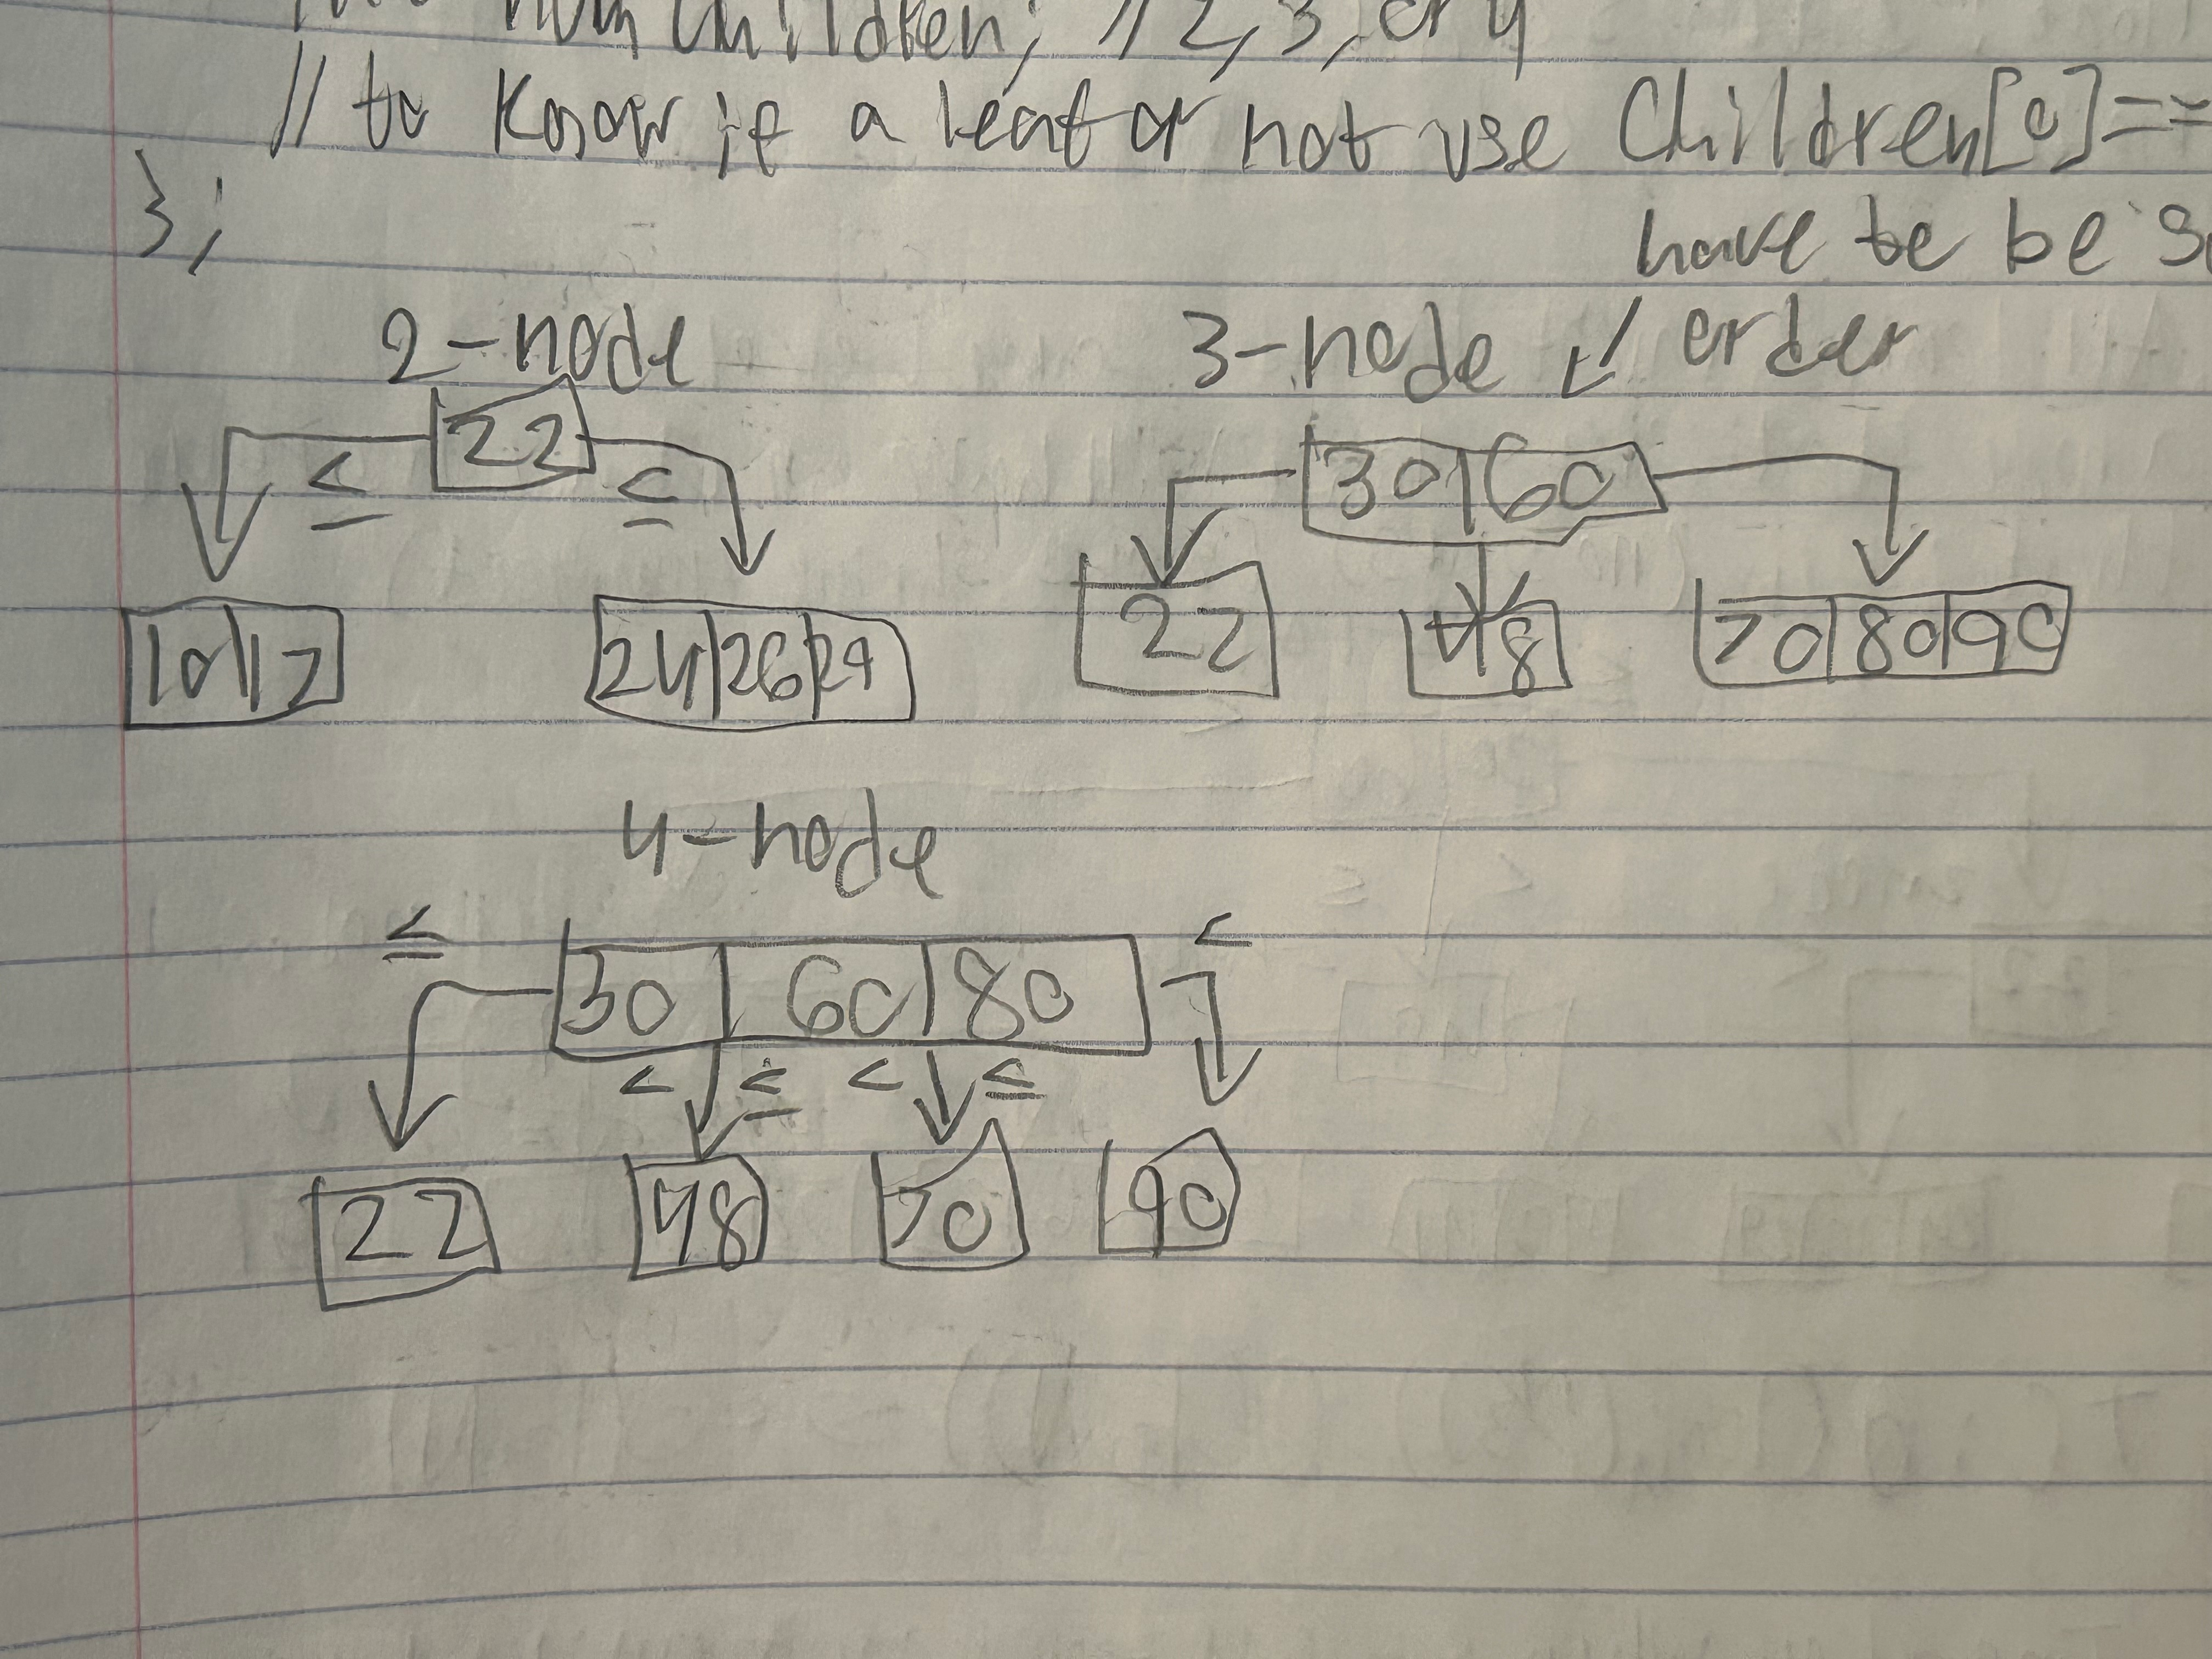 numChildren; // 2, 3, or 4
// to know if a leaf or not use Children[0]==
};
have to be
2-node
3-node ↙ order
22
≤ ≤
30|60
10|17
24|26|29
22
48
70|80|90
4-node
≤ <
30|60|80
< ≤ < ≤
22 48 70 90